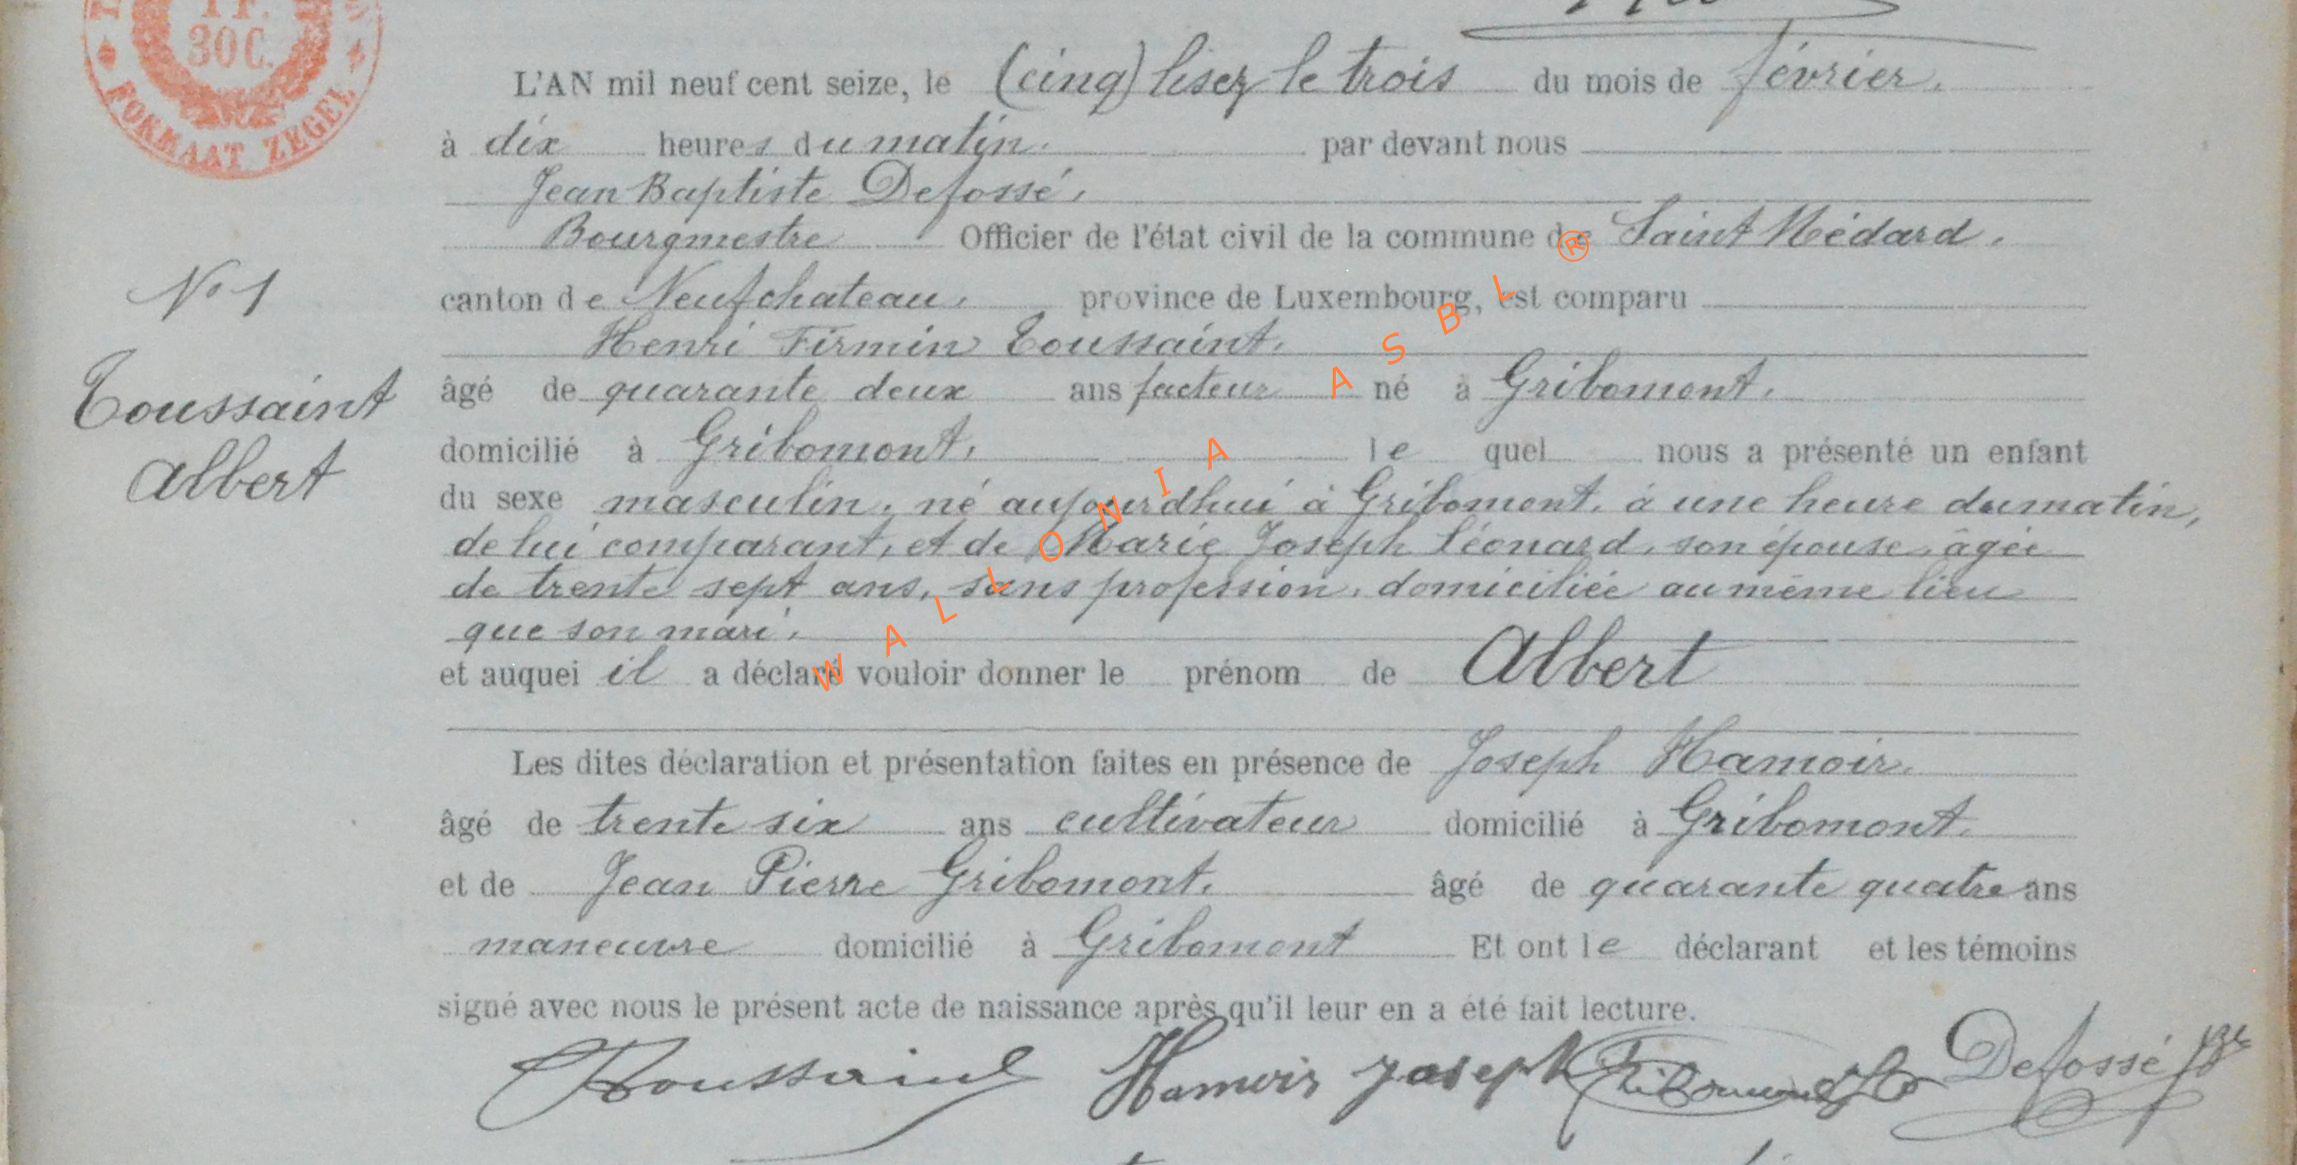 1 F.
30 C.
FORMAAT ZEGEL
L'AN mil neuf cent seize, le (cinq) lisez le trois du mois de février.
à dix heures du matin. par devant nous
Jean Baptiste Defossé,
Bourgmestre Officier de l'état civil de la commune de Saint Médard,
N° 1
canton de Neufchateau, province de Luxembourg, est comparu
Henri Firmin Toussaint,
Toussaint
Albert
âgé de quarante deux ans facteur né à Gribomont,
domicilié à Gribomont, le quel nous a présenté un enfant
du sexe masculin, né aujourdhui à Gribomont, à une heure du matin,
de lui comparant, et de Marie Joseph Léonard, son épouse, âgée
de trente sept ans, sans profession, domiciliée au même lieu
que son mari,
et auquel il a déclaré vouloir donner le prénom de Albert
Les dites déclaration et présentation faites en présence de Joseph Hamoir,
âgé de trente six ans cultivateur domicilié à Gribomont
et de Jean Pierre Gribomont, âgé de quarante quatre ans
maneuvre domicilié à Gribomont Et ont le déclarant et les témoins
signé avec nous le présent acte de naissance après qu'il leur en a été fait lecture.
Toussaint Hamoir Joseph Gribomont Defossé
WALLONIA ASBL ®